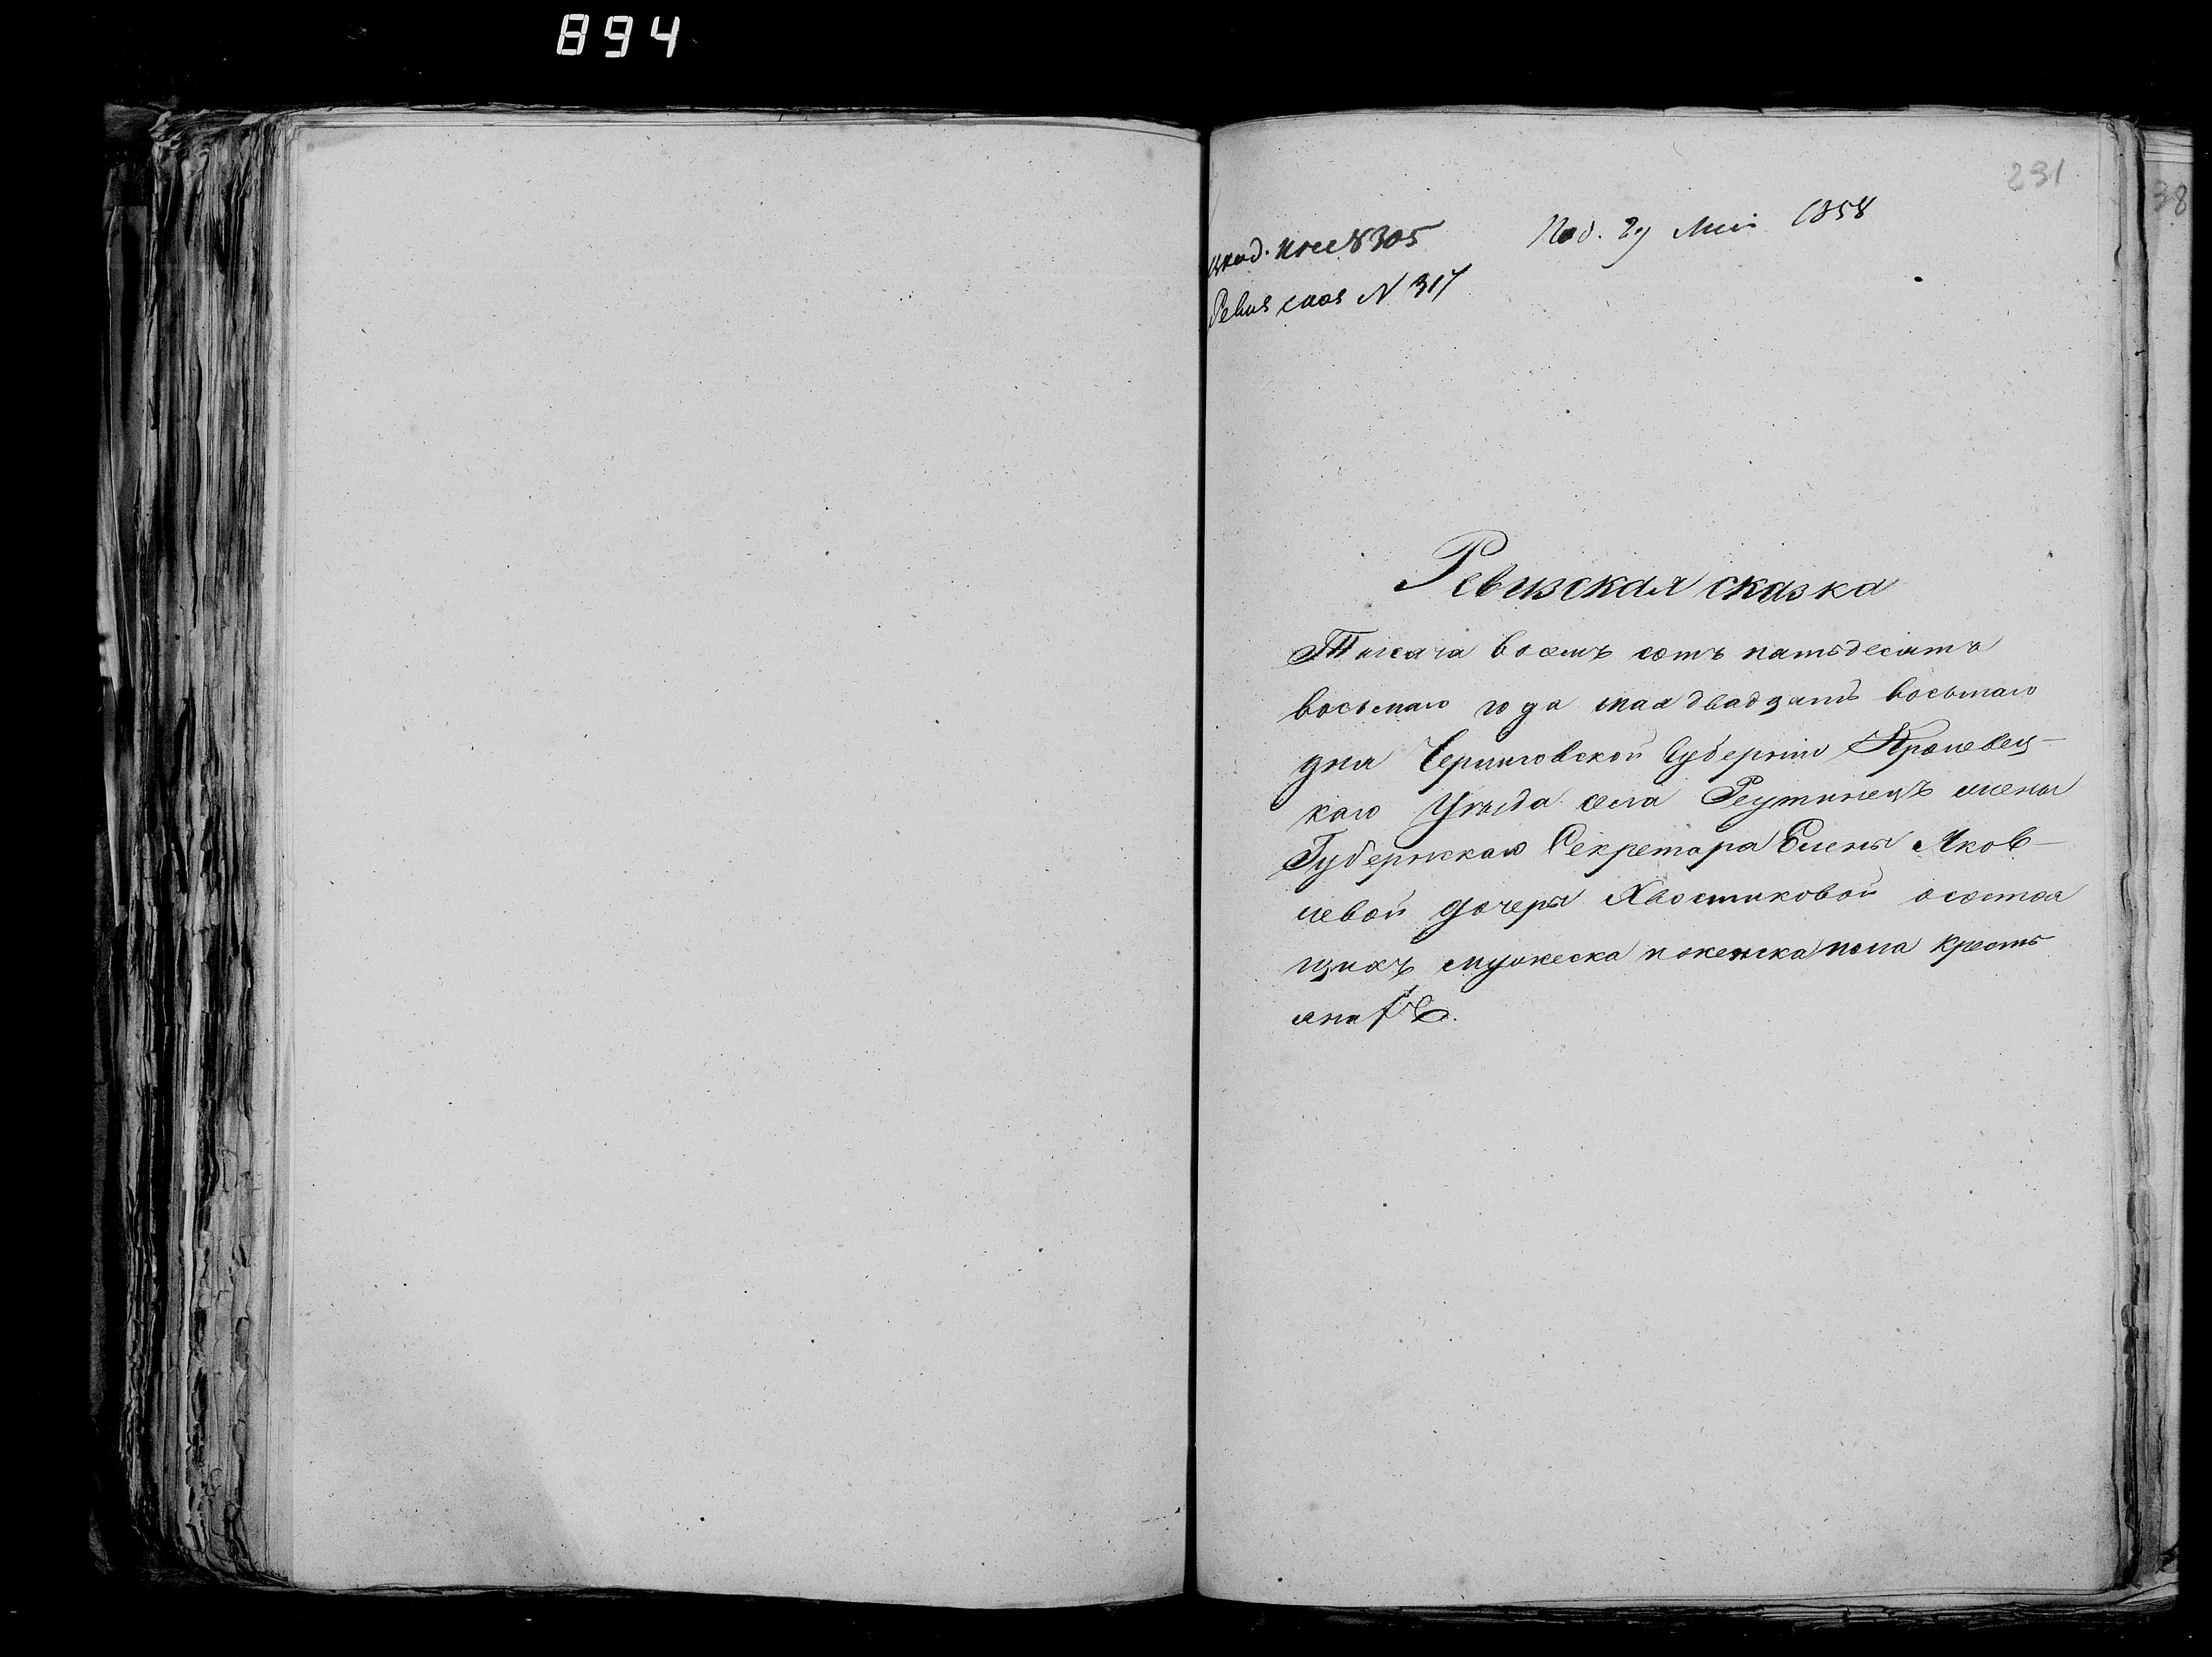 894
231
38
Под. 29 Мая 1858
вход. 8305
Ревиз сказ N 317
Ревизская сказка
Тысяча восемъ сотъ пятьдесятъ
восьмаго года мая двадцать восьмаго
дня Черниговской Губерніи Кролевец-
каго Уѣзда села Реутинецъ жены
Губернскаго Секретара Елены Яков-
левой дочери Хвостиковой о состоя
щихъ мужеска и женска пола кресть
янахъ